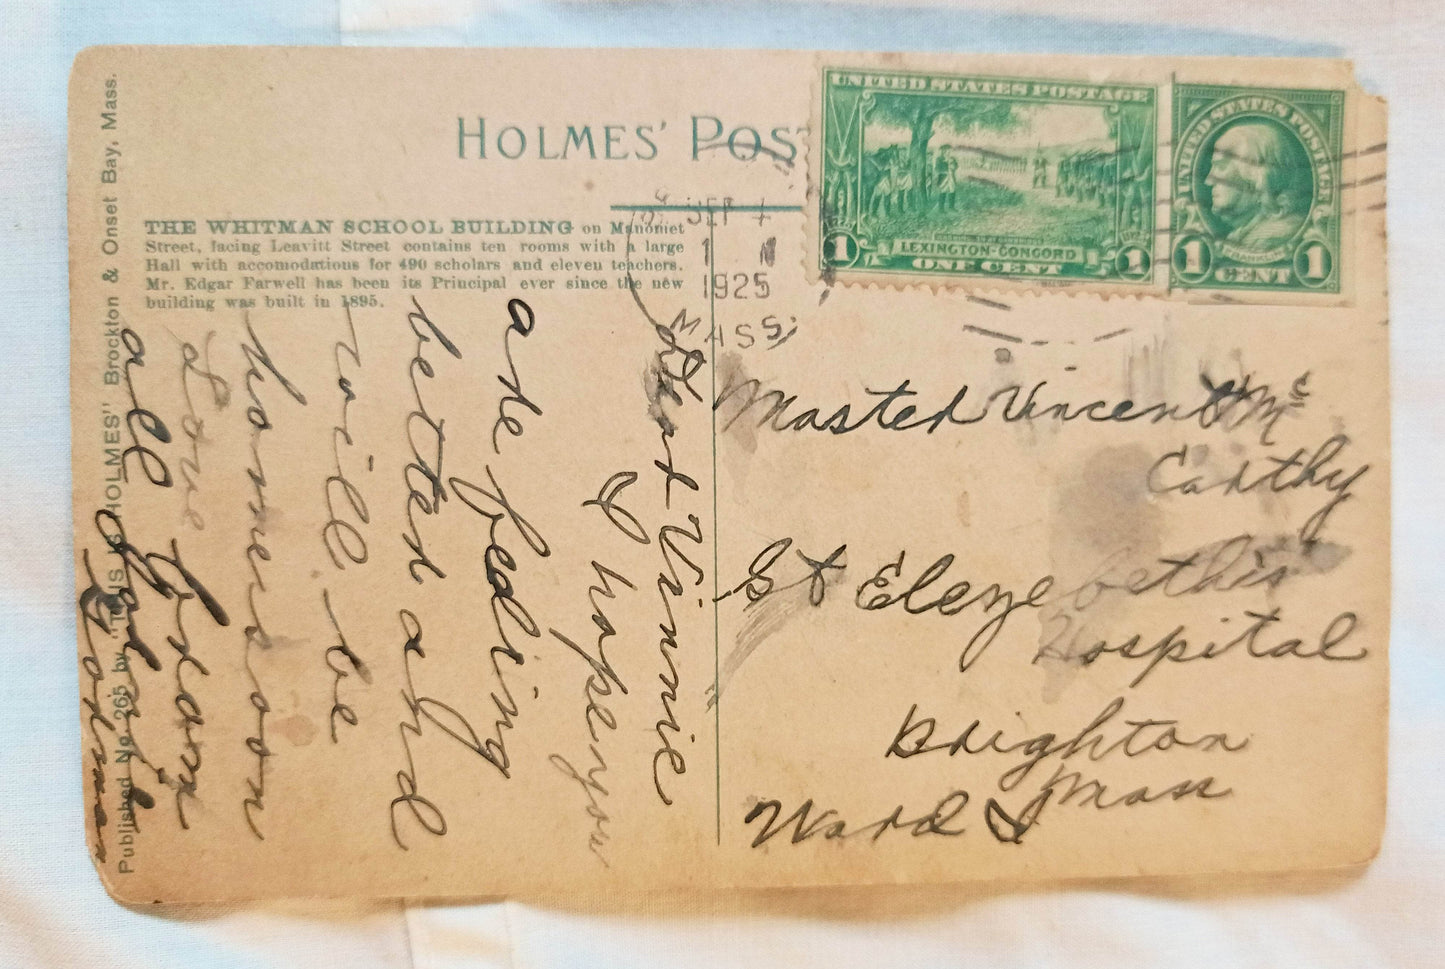 HOLMES' POS
THE WHITMAN SCHOOL BUILDING on Manomet
Street, facing Leavitt Street contains ten rooms with a large
Hall with accomodations for 490 scholars and eleven teachers.
Mr. Edgar Farwell has been its Principal ever since the new
building was built in 1895.
Published No. 265 by "THIS IS HOLMES" Brockton & Onset Bay, Mass.
SEP
1925
MASS
UNITED STATES POSTAGE
1 LEXINGTON-CONCORD 1
ONE CENT
UNITED STATES POSTAGE
FRANKLIN
1 CENT 1
Dear Vinnie
I hope you
are feeling
better and
will be
home soon
Love from
all
Master Vincent Mc
Carthy
St Elezebethis
Hospital
Brighton
Mass
Ward I